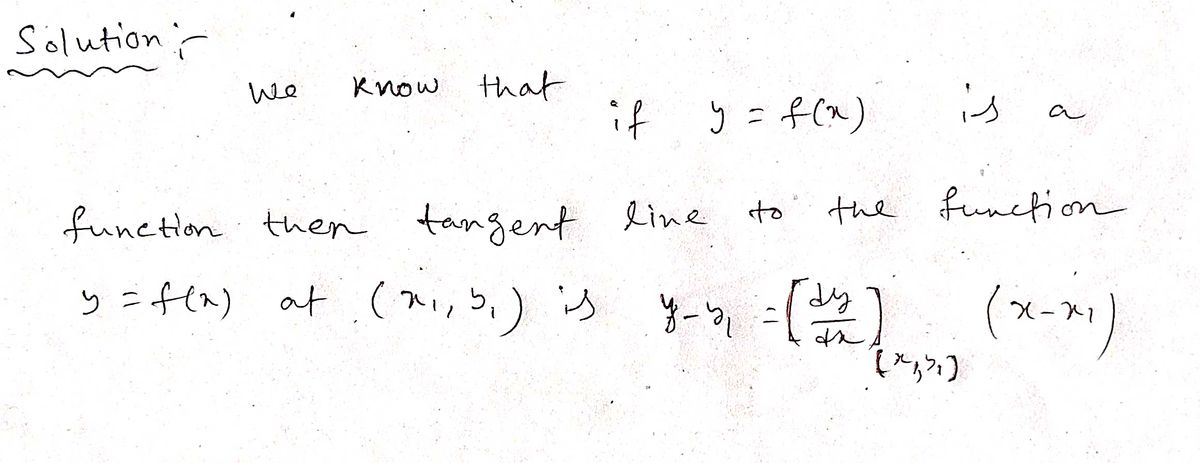 Solution :-
We know that if y = f(x) is a
function then tangent line to the function
y = f(x) at (x₁, y₁) is y - y₁ = [dy/dx](x₁, y₁) (x - x₁)